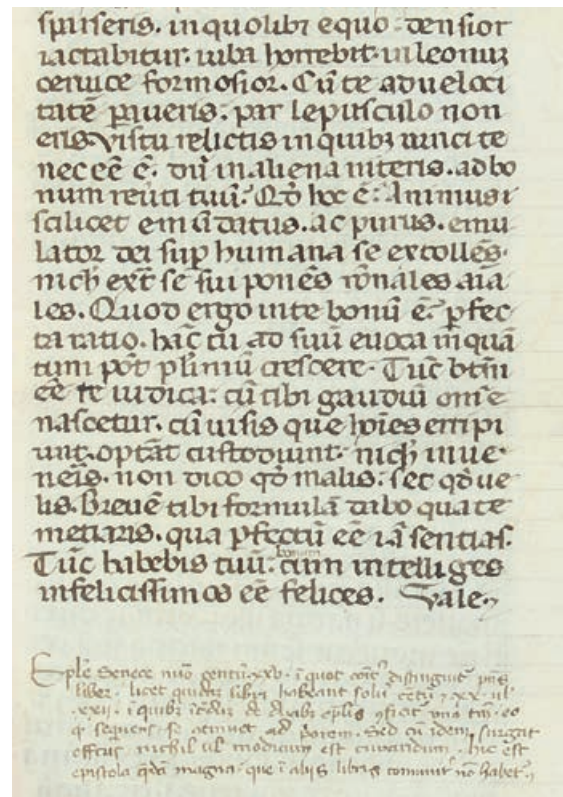 spuseris. in quolibꝫ equo densior
iactabitur. iuba horrebit. in leonuꝫ
ceruice formosior. Cū te ad ueloci
tatē ꝑaueris: par lepusculo non
eris. Vis tu relictis in quibꝫ uinci te
nec eē ē. dū in aliena niteris. ad bo
num reuti tuū? Qđ hoc ē? Animus
scilicet em̄datus. ac purus. emu
lator dei suꝑ humana se extollēs.
nich̄ ext̄ se sui ponēs rōnales aīa
les. Quod ergo in te bonū ē? ꝑfec
ta ratio. hāc tū ad suū euoca in quā
tum pōt plīmū crescere. Tūc btm̄
eē te iudica: cū tibi gaudiū om̄e
nascetur. cū uisis que hoīes erripi
unt. optāt custodiunt. nich̄ inue
neris. non dico qđ malis: set qđ ue
lis. Breuē tibi formulā dabo qua te
metiaris. qua ꝑfectū eē iā sentias.
Tūc habebis tuū: bonum cum intelliges
infelicissimos eē felices. Vale.
Eple Senece nūo centū. xxv. ī quot distinguit̄ pn̄s
liber. licet quidaꝫ libri habeant solū cētū ⁊ xx. ul̓
xxii. ī quibꝫ de duabꝫ eplis ꝯficit̄ una tm̄. eo
q sequens se ad pōrem. Sed cū idem surgat
effcūs nichil ul̓ modicum est curandum. huc est
epistola qdā magna. que ī aliis libris comunit̄ nō habet̄.